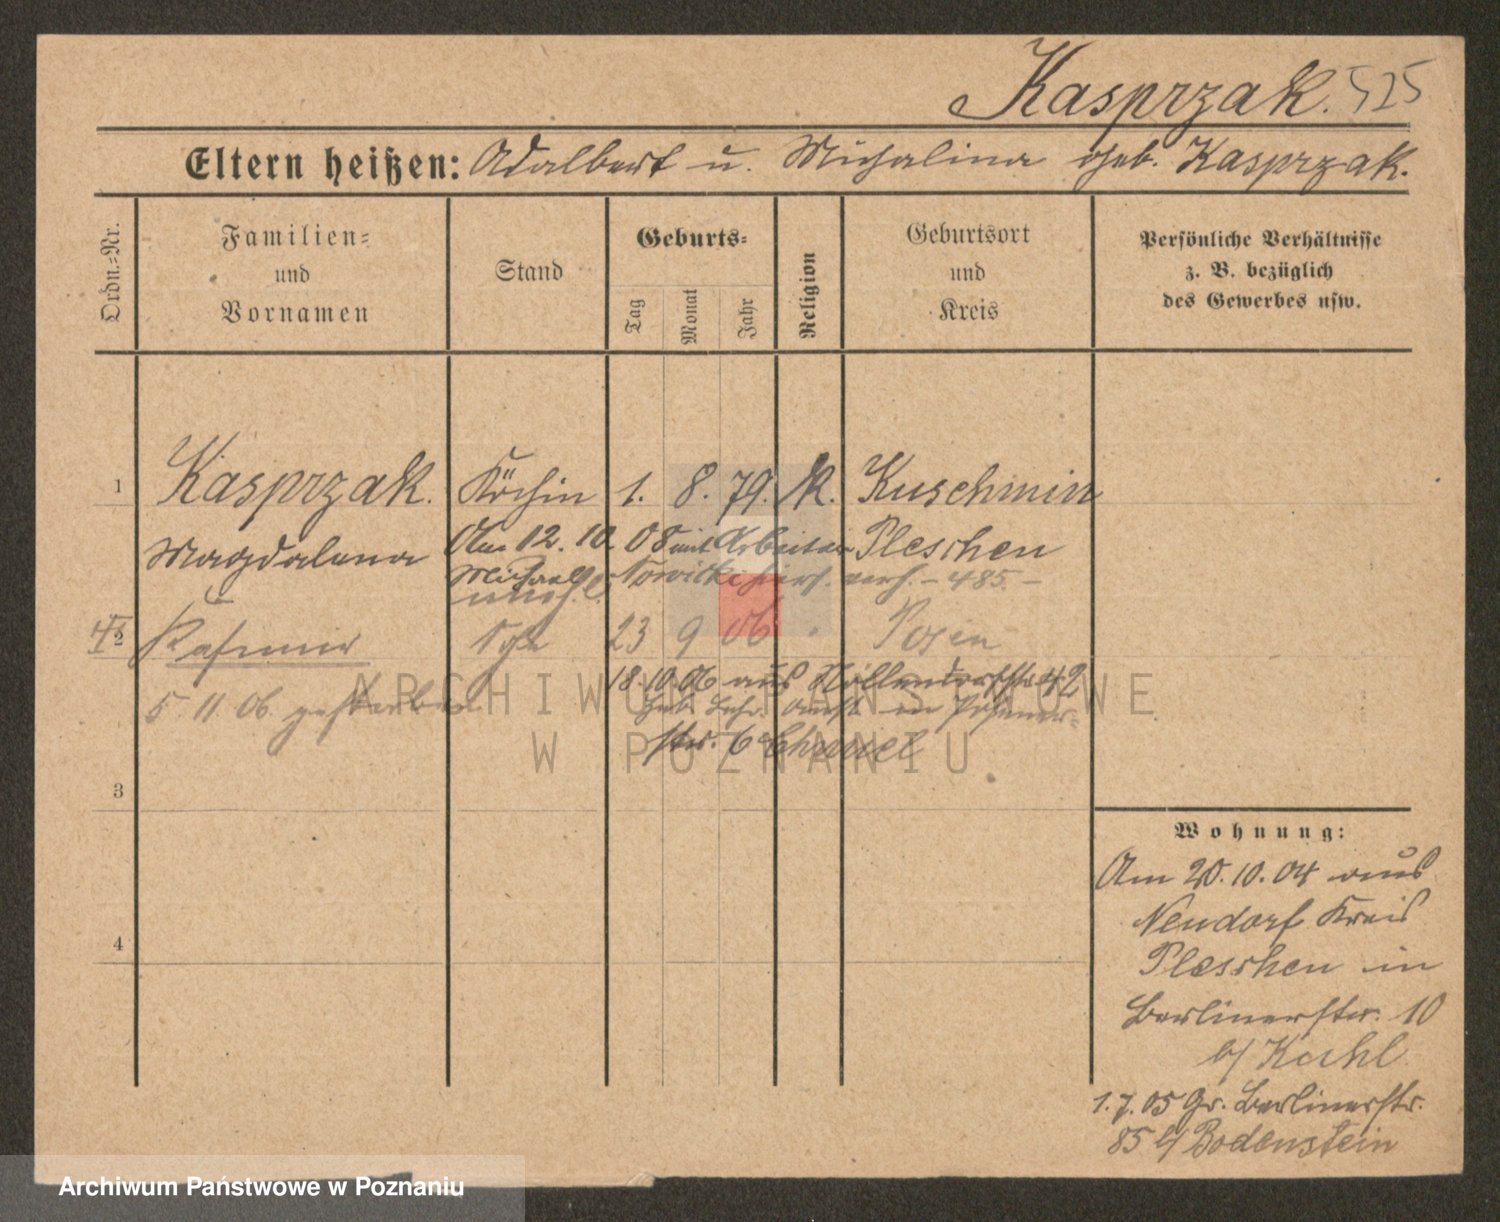 Kasprzak. 525
Eltern heißen: Adalbert u. Michalina geb. Kasprzak.
Ordn.-Nr.
Familien-
und
Vornamen
Stand
Geburts-
Tag
Monat
Jahr
Religion
Geburtsort
und
Kreis
Persönliche Verhältnisse
z. B. bezüglich
des Gewerbes usw.
1 Kasprzak. Köchin 1. 8. 79. K. Kuschmin
Magdalena Pleschen
Am 12. 10. 08 mit Arbeiter
Michael Nowicki hier verh. - 485. -
unehl.
2 Kasimir 23 9 06 Posen
5 11 06. gestorben
18.10.06 aus Nollendorfstr 42
in
str. 6
3
4
Wohnung:
Am 20.10.04 aus
Neudorf Kreis
Pleschen in
Berlinerstr. 10
b/ Kuhl
1.7.05 Gr. Berlinerstr.
85 b/ Bodenstein
ARCHIWUM PAŃSTWOWE
W POZNANIU
Archiwum Państwowe w Poznaniu